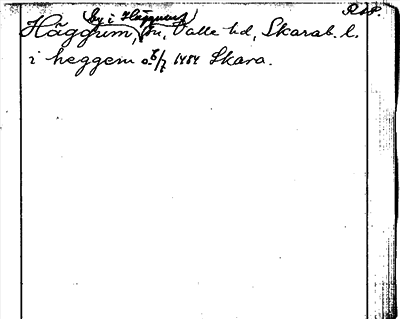 by i Häggums
Häggum, sn, Valle hd, Skarab. l.
i heggem o 6/7 1484 Skara.